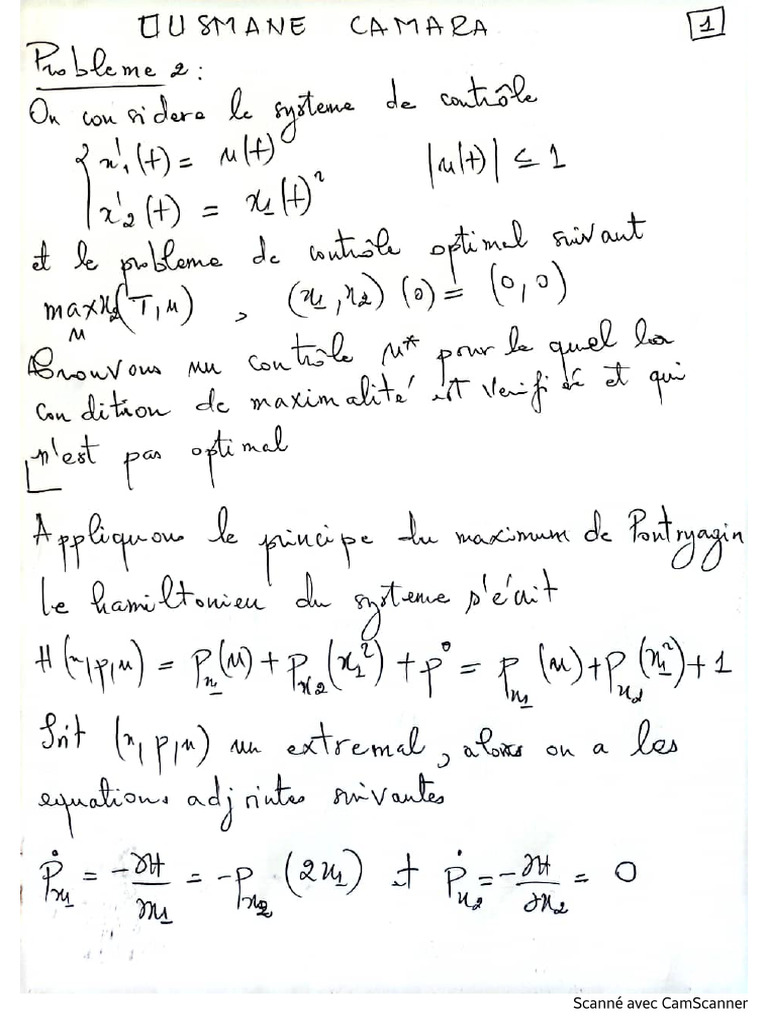 OUSMANE CAMARA 1
Probleme 2:
On considere le systeme de contrôle
{ x'₁(t) = u(t) |u(t)| ≤ 1
x'₂(t) = x₁(t)²
et le probleme de contrôle optimal suivant
max x₂(T,u) , (x₁,x₂)(0) = (0,0)
u
Trouvons un contrôle u* pour le quel la
condition de maximalité est verifiée et qui
n'est pas optimal
Appliquons le principe du maximum de Pontryagin
le hamiltonien du systeme s'écrit
H(x,p,u) = P_x₁(u) + P_x₂(x₁²) + p° = P_x₁(u) + P_x₂(x₁²) + 1
Soit (x,p,u) un extremal, alors on a les
equations adjointes suivantes
Ṗ_x₁ = -∂H/∂x₁ = -P_x₂(2x₁) et Ṗ_x₂ = -∂H/∂x₂ = 0
Scanné avec CamScanner